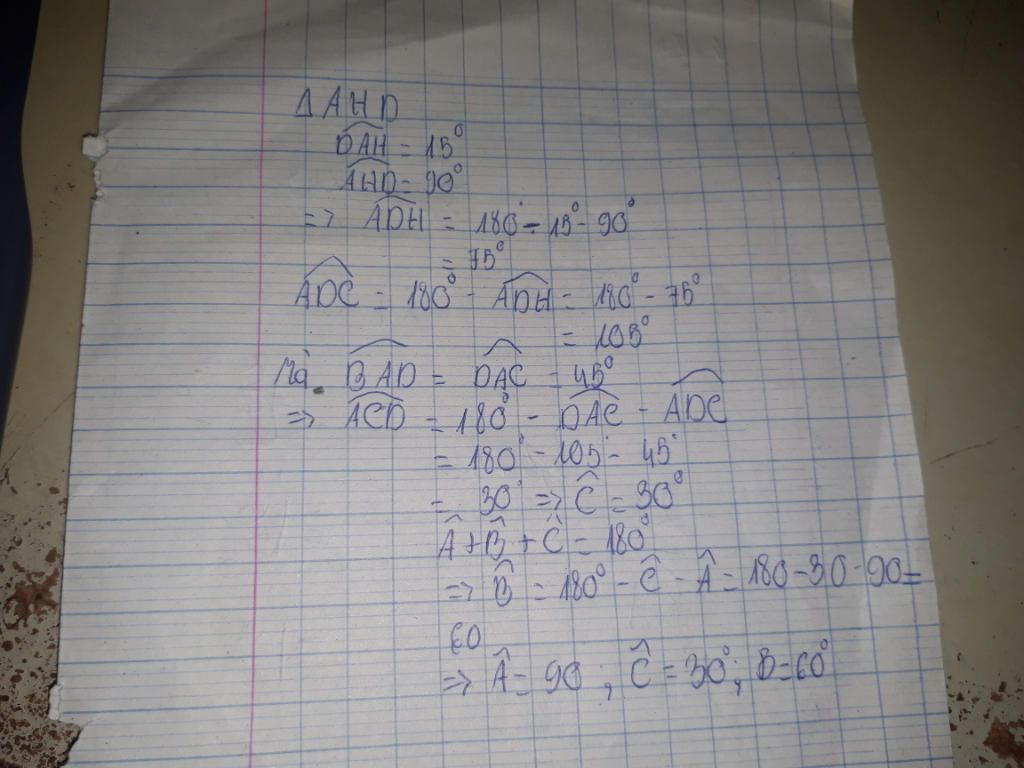 Δ AHD
DAH = 15°
AHD = 90°
=> ADH = 180° - 15° - 90°
= 75°
ADC = 180° - ADH = 180° - 75°
= 105°
Mà BAD = DAC = 45°
=> ACD = 180° - DAC - ADC
= 180° - 105° - 45°
= 30° => Ĉ = 30°
Â + B̂ + Ĉ = 180°
=> B̂ = 180° - Ĉ - Â = 180 - 30 - 90 =
60
=> Â = 90 ; Ĉ = 30° ; B = 60°